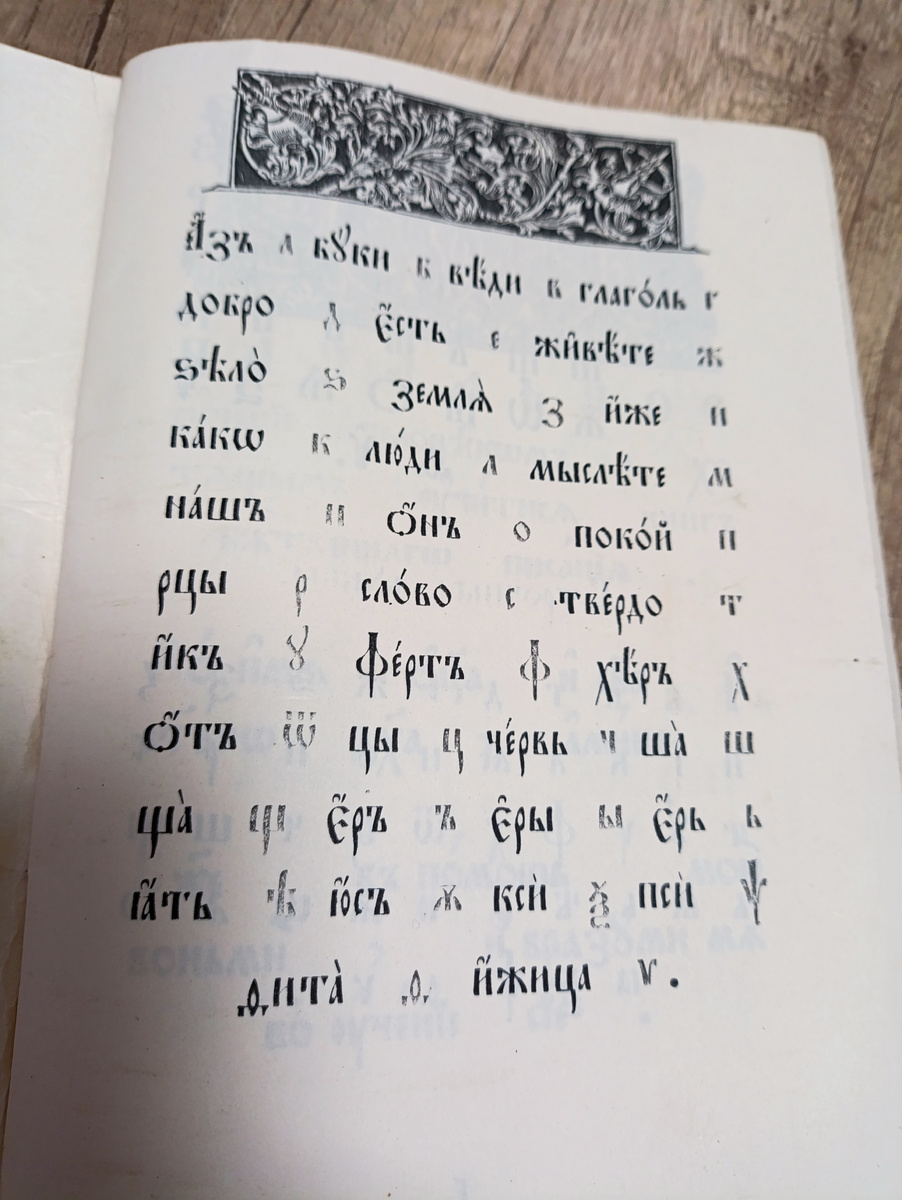 А҆́зъ а бꙋ́ки б вѣ́ди в глаго́ль г
добро д є҆́сть е живѣ́те ж
ѕѣлѡ̀ ѕ землѧ̀ з и҆́же и
ка́кѡ к лю́ди л мыслѣ́те м
на́шъ н ѻ҆́нъ о поко́й п
рцы р сло́во с тве́рдо т
и҆́къ ꙋ фе́ртъ ф хѣ́ръ х
ѻ҆́тъ ѿ цы ц че́рвь ч ша̀ ш
ща̀ щ є҆́ръ ъ є҆ры̀ ы є҆́рь ь
ꙗ҆́ть ѣ ю҆́съ ѫ ксѝ ѯ псѝ ѱ
ѳита̀ ѳ и҆́жица ѵ.